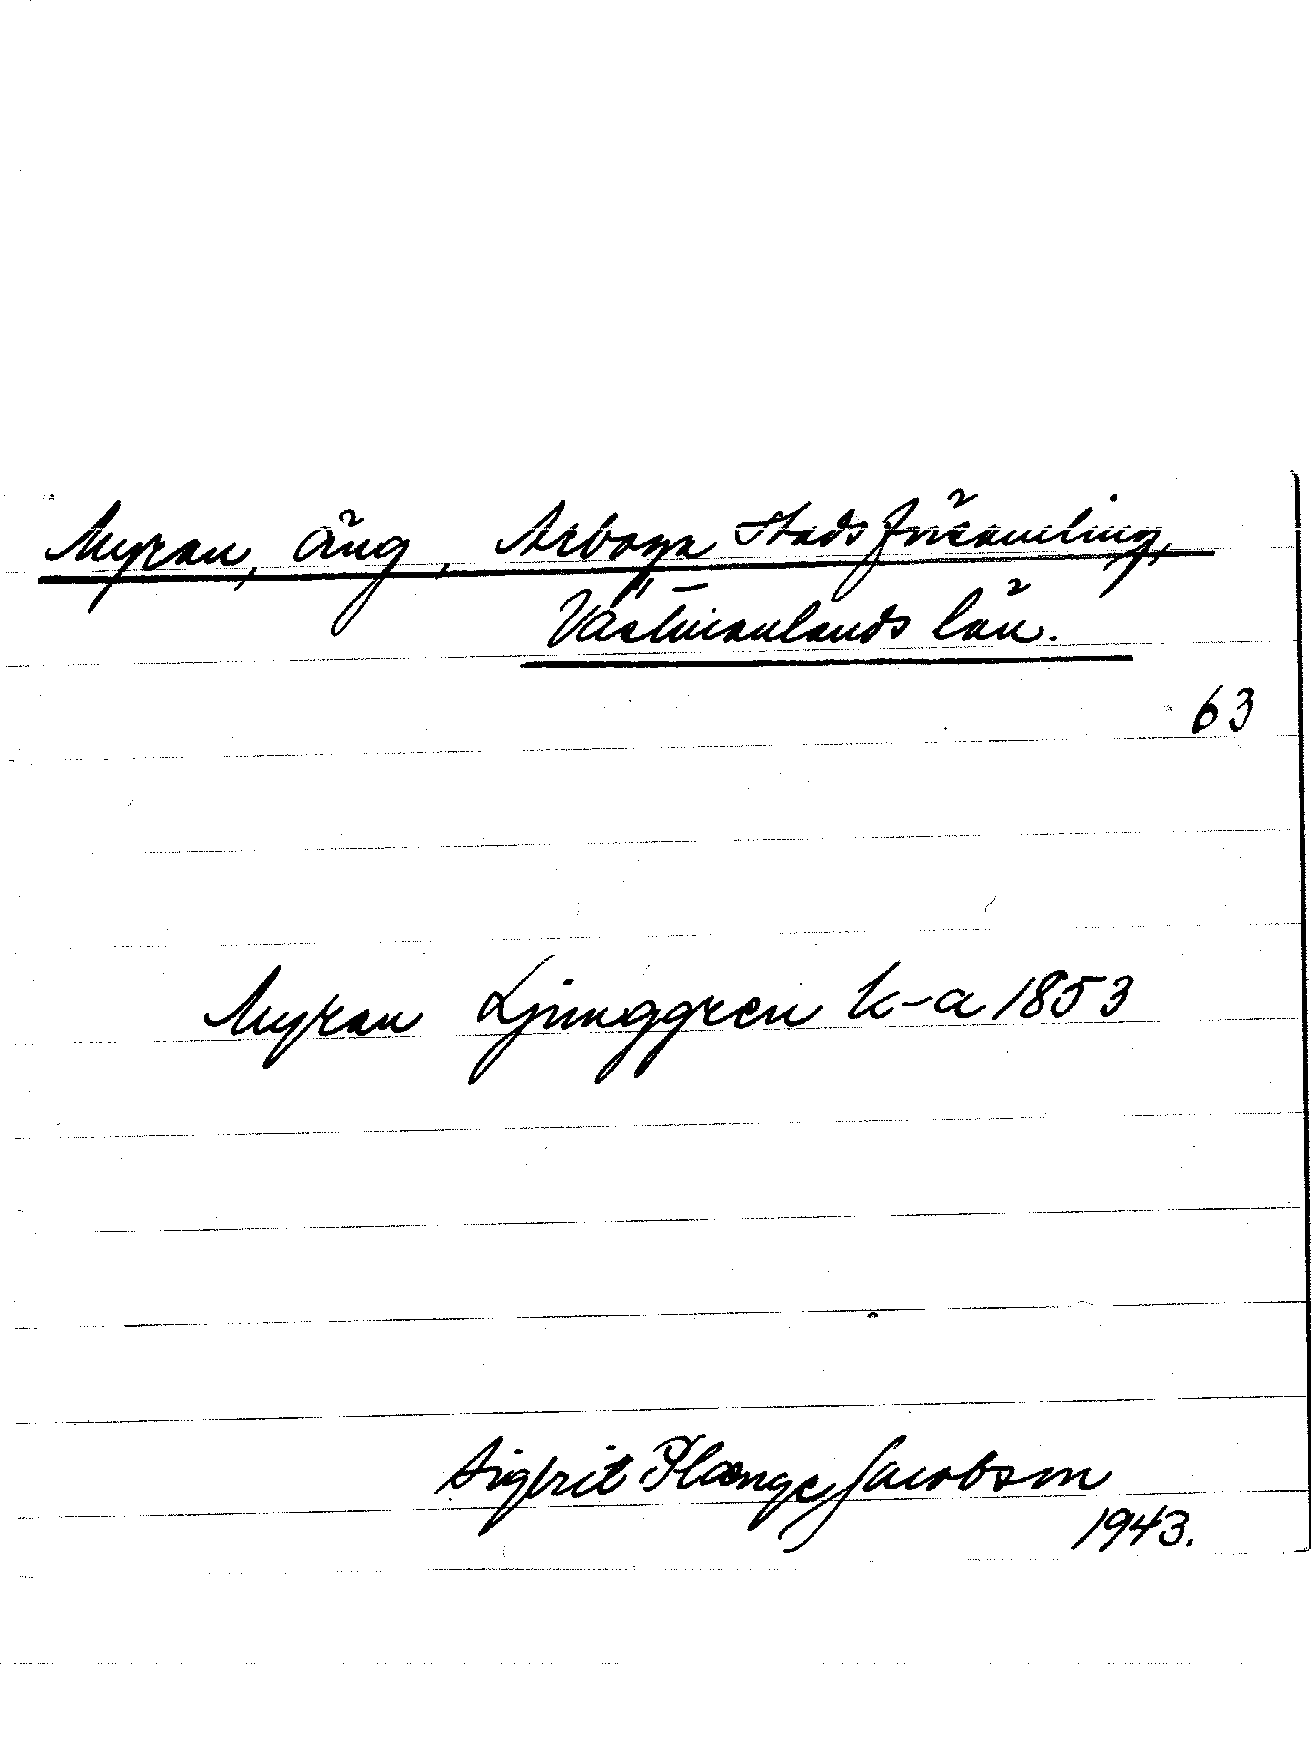 Myran, äng, Arboga Stadsförsamling,
Västmanlands län.
63
Myran Ljunggren k-a 1853
Sigfrit Plænge Jacobson
1943.